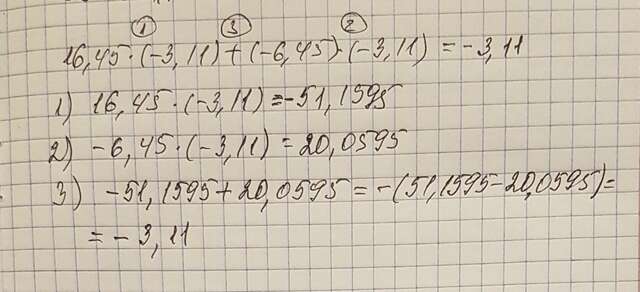 ① ③ ②
16,45·(-3,11)+(-6,45)·(-3,11)=-3,11
1) 16,45·(-3,11)=-51,1595
2) -6,45·(-3,11)=20,0595
3) -51,1595+20,0595=-(51,1595-20,0595)=
=-3,11